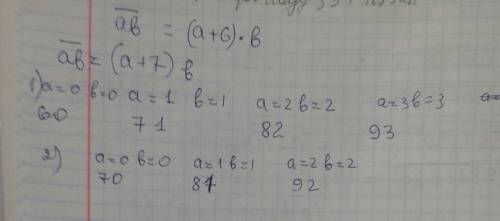 ab = (a+6)·b
ab = (a+7) b
1) a=0 b=0 a=1 b=1 a=2 b=2 a=3 b=3
60 71 82 93
2) a=0 b=0 a=1 b=1 a=2 b=2
70 81 92